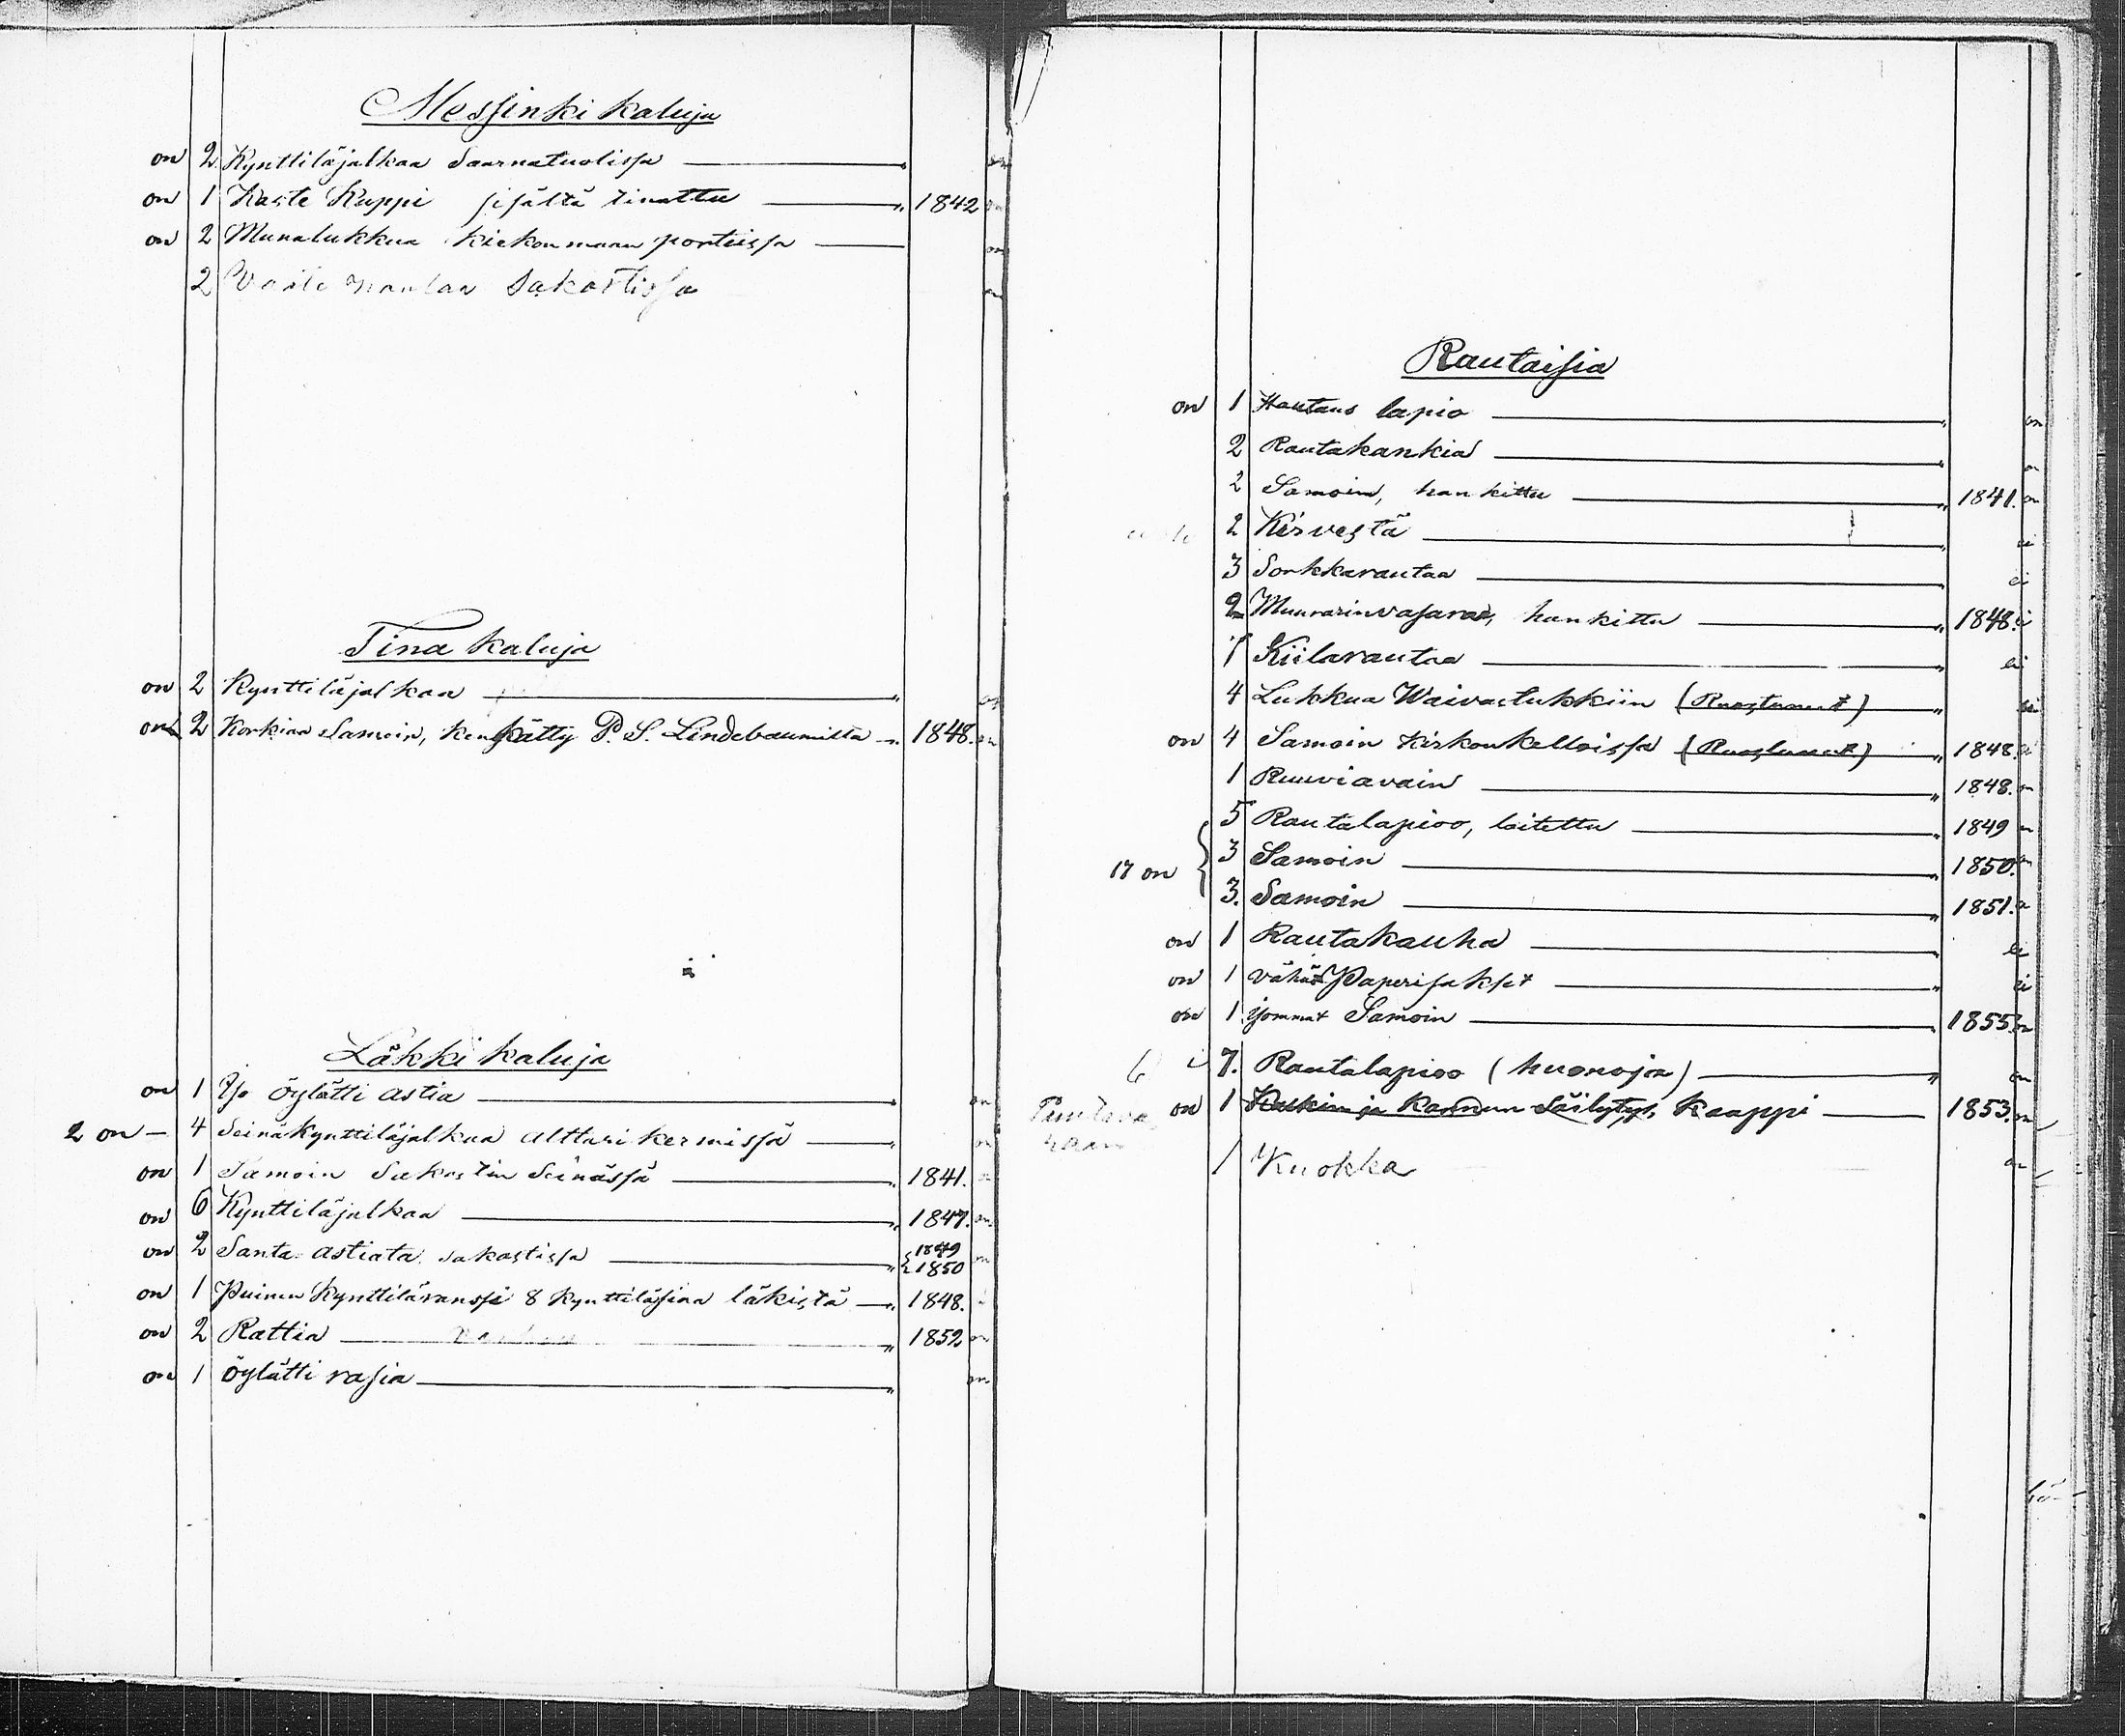 Messinki kaluja
on 2 Kynttiläjalkaa Saarnatuolissa on
on 1 Kaste Kuppi sisältä tinattu 1842 on
on 2 Munalukkua kirkonmaan portissa on
2 naulaa Sakastissa on
Tina kaluja
on 2 Kynttiläjalkaa on
on 2 Korkiaa Samoin, kenkätty P. S. Lindebaumilta 1848. on
Läkki kaluja
on 1 Iso öylätti astia on
2 on — 4 Seinäkynttiläjalkaa Alttari kermissä on
on 1 Samoin Sakastin Seinässä 1841.
on 6 Kynttiläjalkaa 1847. on
on 2 Santa astiata sakastissa { 1849 on
1850
on 1 Puinen Kynttiläranssi 8 kynttiläsiaa läkistä 1848.
on 2 Rattia 1852 on
on 1 öylätti rasia on
Rautaisia
on 1 Hautaus lapio on
2 Rautakankia on
2 Samoin, hankittu 1841. on
2 Kirvestä ei
3 Sorkkarautaa ei
2 Muurarinvasaraa, hankittu 1848. ei
1 Kiilarautaa ei
4 Lukkua Waivastukkiin (Ruostunut) ei
on 4 Samoin kirkonkelloissa (Ruostunut) 1848. ei
1 Ruuviavain 1848. on
5 Rautalapioo, laitettu 1849 on
17 on { 3 Samoin 1850. on
3. Samoin 1851. on
on 1 Rautakauha ei
on 1 vähät Paperisakset ei
on 1 isommat Samoin 1855. on
6 7. Rautalapioo (huonoja) on
on 1 Kalkin ja Kannun Säilytys, Kaappi 1853. on
1 Kuokka on